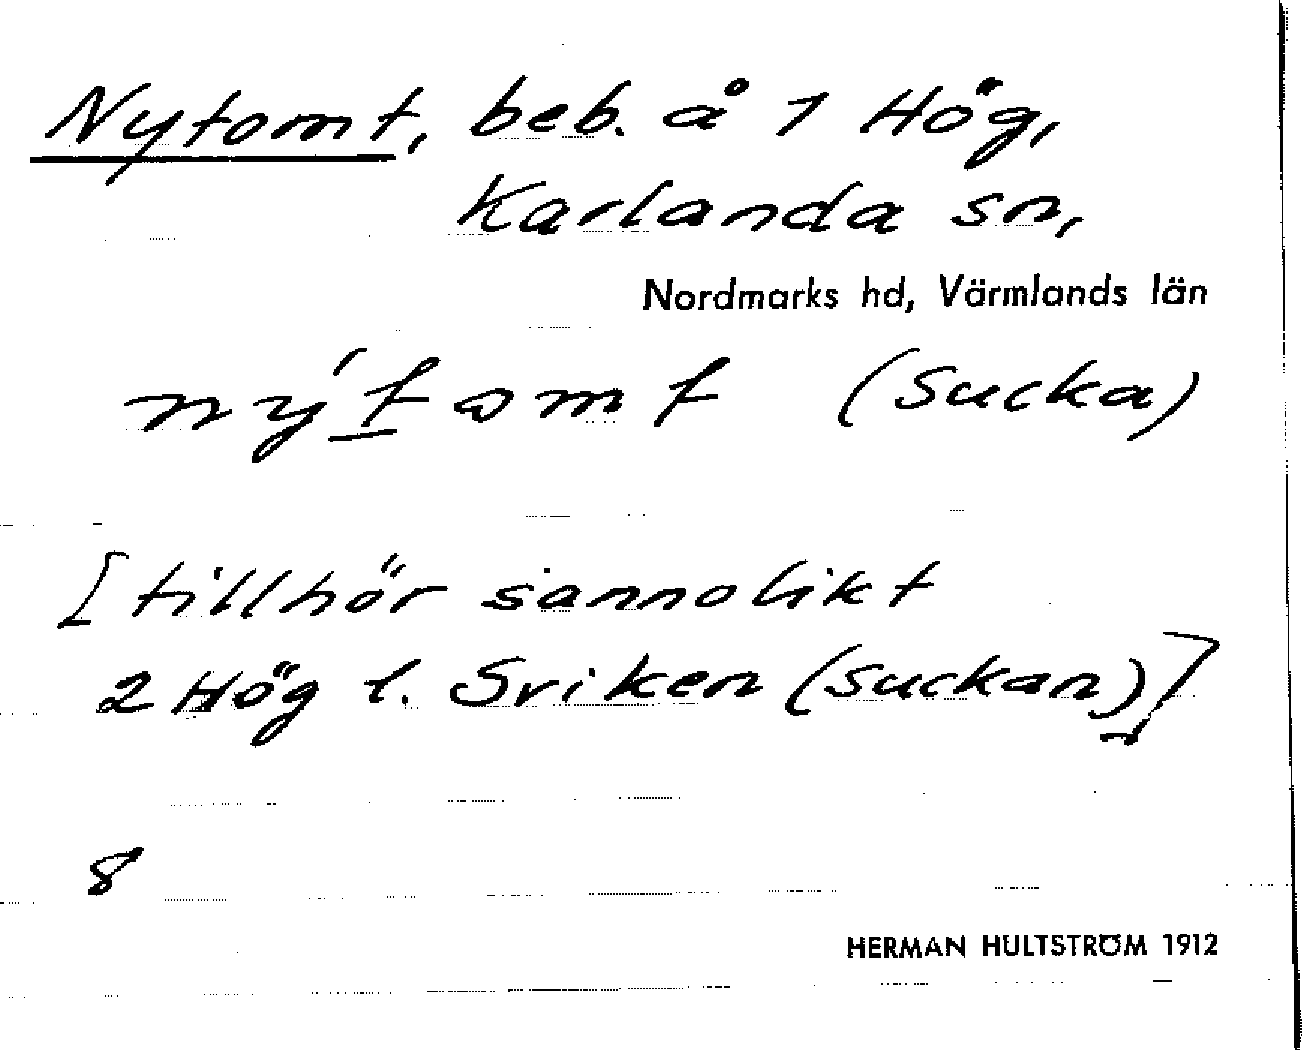 Nytomt, beb. å 1 Hög,
Karlanda sn,
Nordmarks hd, Värmlands län
ný̲tomt (Sucka)
[tillhör sannolikt
2 Hög l. Sviken (Suckan)]
8
HERMAN HULTSTRÖM 1912